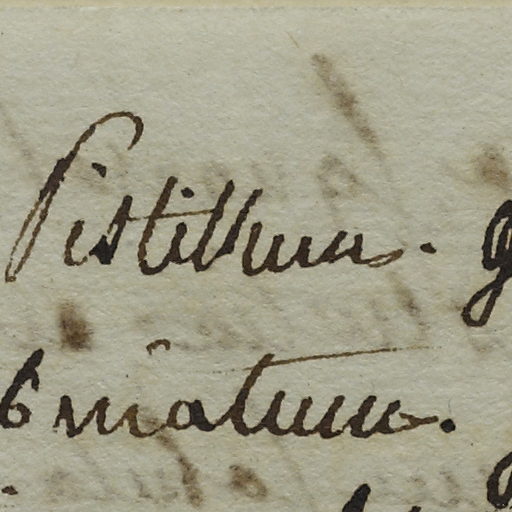 Pistillum. G
6 miatum.